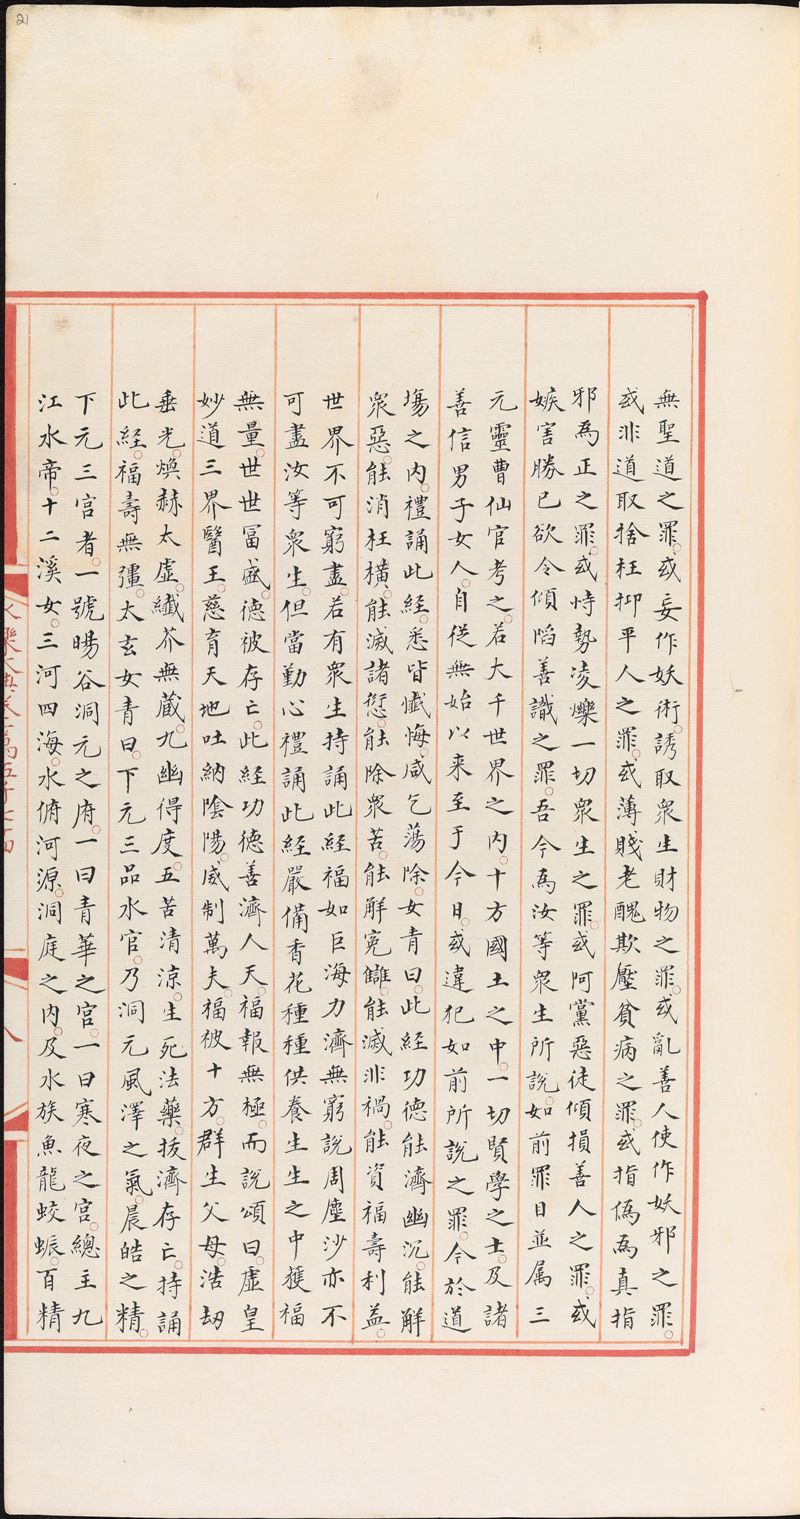 21
無聖道之罪。或妄作妖術。誘取衆生財物之罪。或亂善人使作妖邪之罪。
或非道取捨枉抑平人之罪。或薄賤老醜欺壓貧病之罪。或指僞為真指
邪為正之罪。或恃勢凌爍一切衆生之罪。或阿黨惡徒傾損善人之罪。或
嫉害勝已欲令傾陷善識之罪。吾今為汝等衆生所說。如前罪目並属三
元靈曹仙官考之。若大千世界之内。十方國土之中。一切賢學之士。及諸
善信男子女人。自從無始以来至于今日。或違犯如前所說之罪。今於道
場之内。禮誦此經。悉皆懺悔。咸乞蕩除。女青曰。此經功德能濟幽沉。能解
衆惡。能消枉横。能滅諸愆。能除衆苦。能解寃讎。能滅非禍。能資福壽利益。
世界不可窮盡。若有衆生持誦此經福如巨海力濟無窮說周塵沙亦不
可盡汝等衆生。但當勤心禮誦此經嚴備香花種種供養生生之中獲福
無量。世世冨盛。德被存亡。此經功德善濟人天。福報無極。而說頌曰。虚皇
妙道三界醫王。慈育天地吐納陰陽。威制萬夫。福彼十方。群生父母。浩劫
垂光。煥赫太虚。纖芥無蔵。九幽得度。五苦清涼。生死法藥。拔濟存亡。持誦
此經。福壽無彊。太玄女青曰。下元三品水官。乃洞元風澤之氣。晨皓之精。
下元三官者。一號暘谷洞元之府。一曰青華之宫。一曰寒夜之宫。總主九
江水帝。十二溪女。三河四海。水俯河源。洞庭之内。及水族魚龍蛟蜃。百精